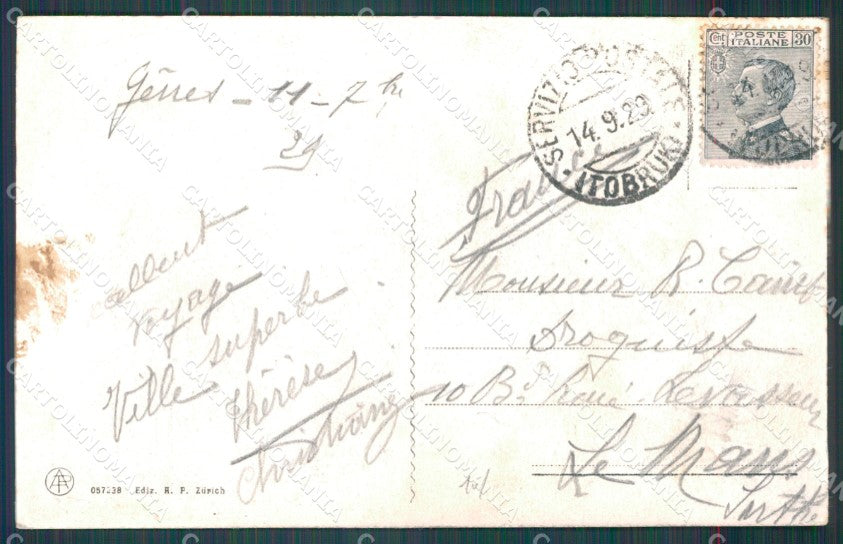 Gênes - 11 - 7bre
29
SERVIZIO POSTALE
14.9.29
ITOBRUK
Cent POSTE 30
ITALIANE
France
Monsieur R.
Droguiste
10 Bd René Levasseur
Le Mans
Sarthe
voyage
Ville superbe
Thérèse
Christiane
057238 Ediz. R. P. Zürich
CARTOLINOMANIA